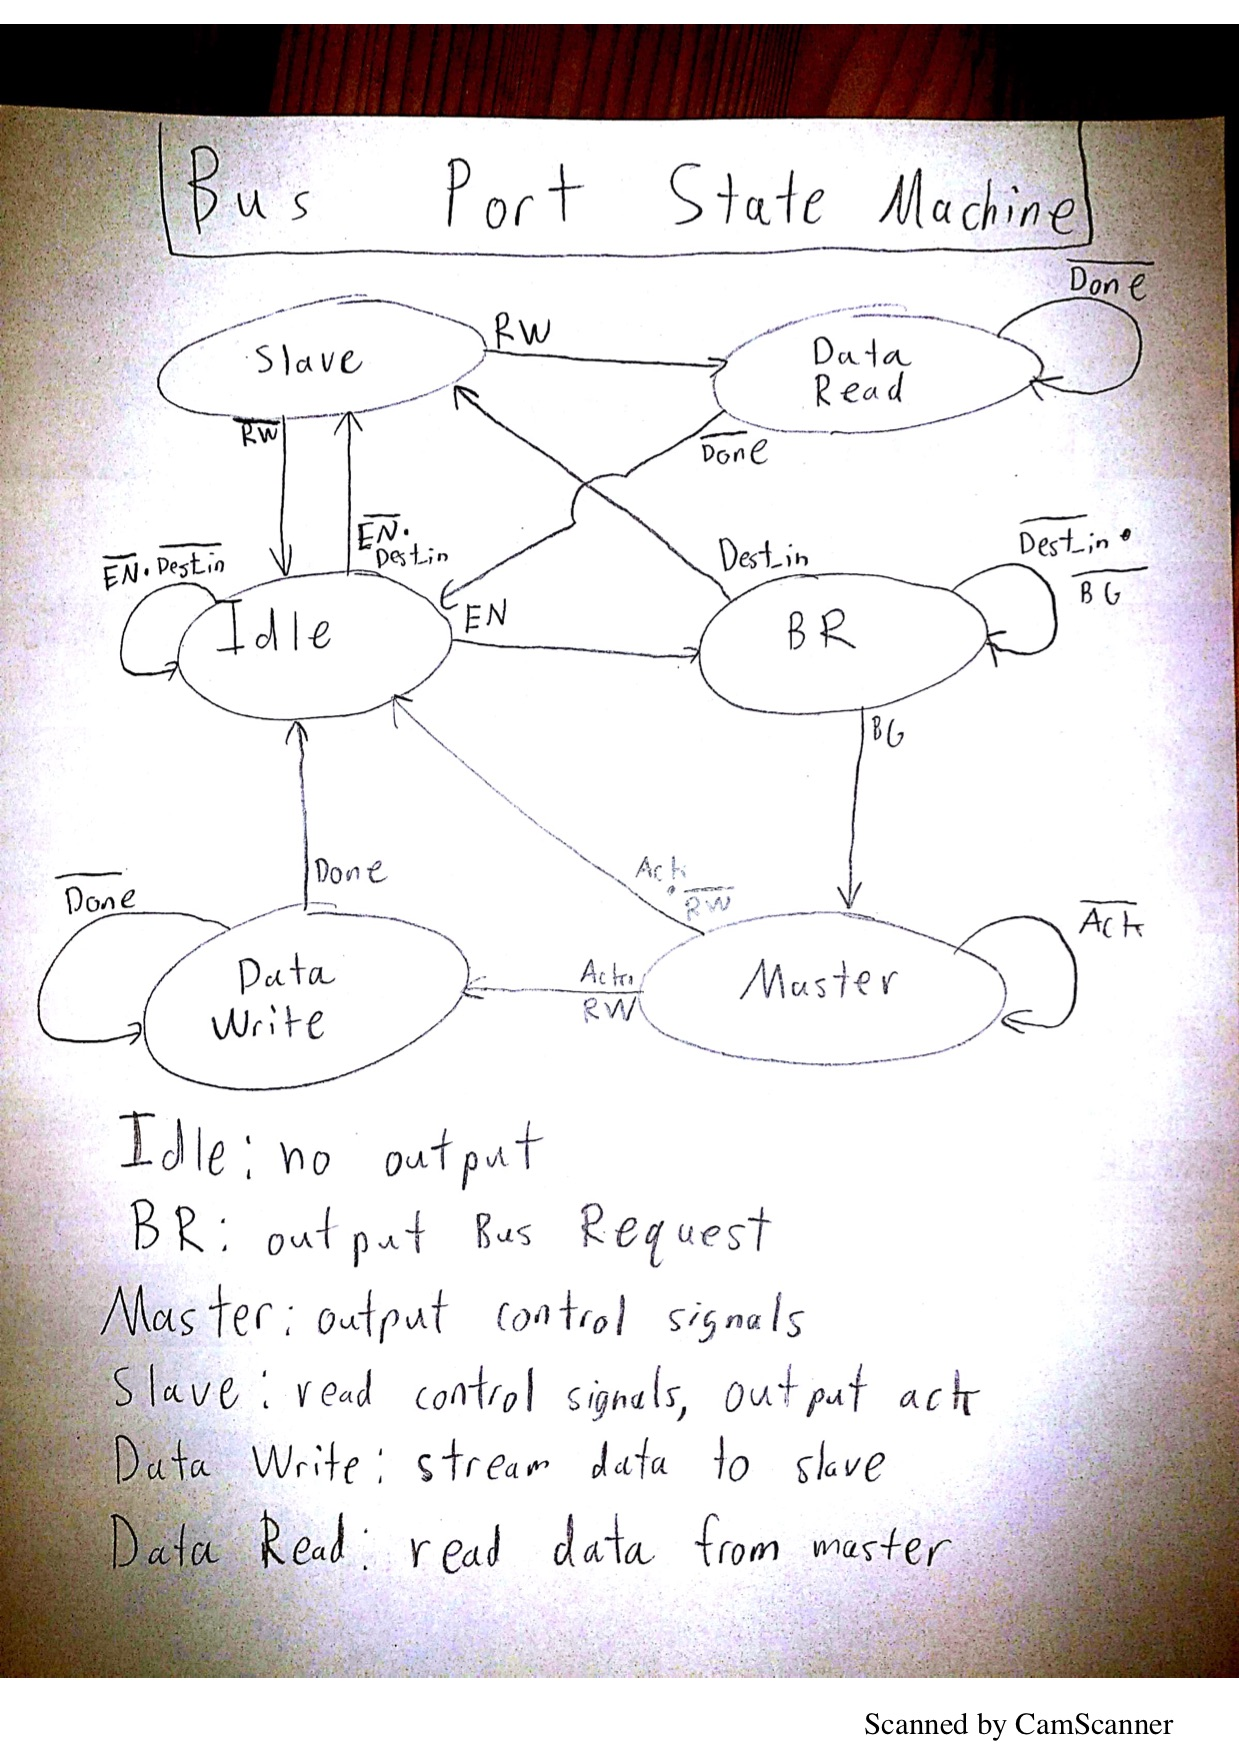 Bus Port State Machine
D̅o̅n̅e̅
Slave
RW
Data
Read
R̅W̅
D̅o̅n̅e̅
E̅N̅·
Dest_in
E̅N̅·D̅e̅s̅t̅_̅i̅n̅
Dest_in
D̅e̅s̅t̅_̅i̅n̅·
B̅G̅
Idle
EN
BR
BG
Done
D̅o̅n̅e̅
Ack
·R̅W̅
A̅c̅k̅
Data
Write
Ack·
RW
Master
Idle: no output
BR: output Bus Request
Master: output control signals
Slave: read control signals, output ack
Data Write: stream data to slave
Data Read: read data from master
Scanned by CamScanner